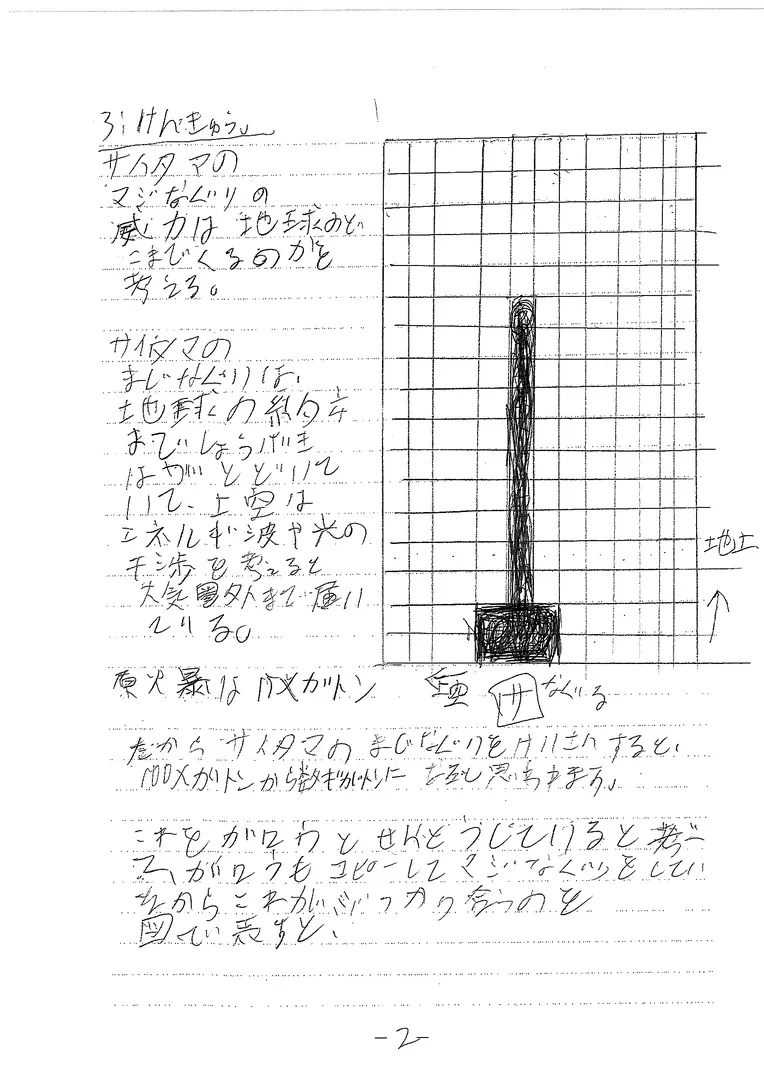 3:けんきゅう。
サイタマの
マジなぐりの
威力は地球のど
こまでくるのかを
考える。
サイタマの
まじなぐりは、
地球の約
までしょうげき
はがとどいて
いて、上空は
エネルギ波や光の
干渉を考えると
大気圏外まで届い
ている。
地上
原火暴は 1メガトン
サ なぐる
だからサイタマのまじなぐりをけいさんすると、
100メガトンから数ギガトンに
思います。
これをガロウとせんとうじているると考
ガロウもコピーしてマジなぐりをしてい
からこれがぶつかり合うのを
図で表すと、
-2-